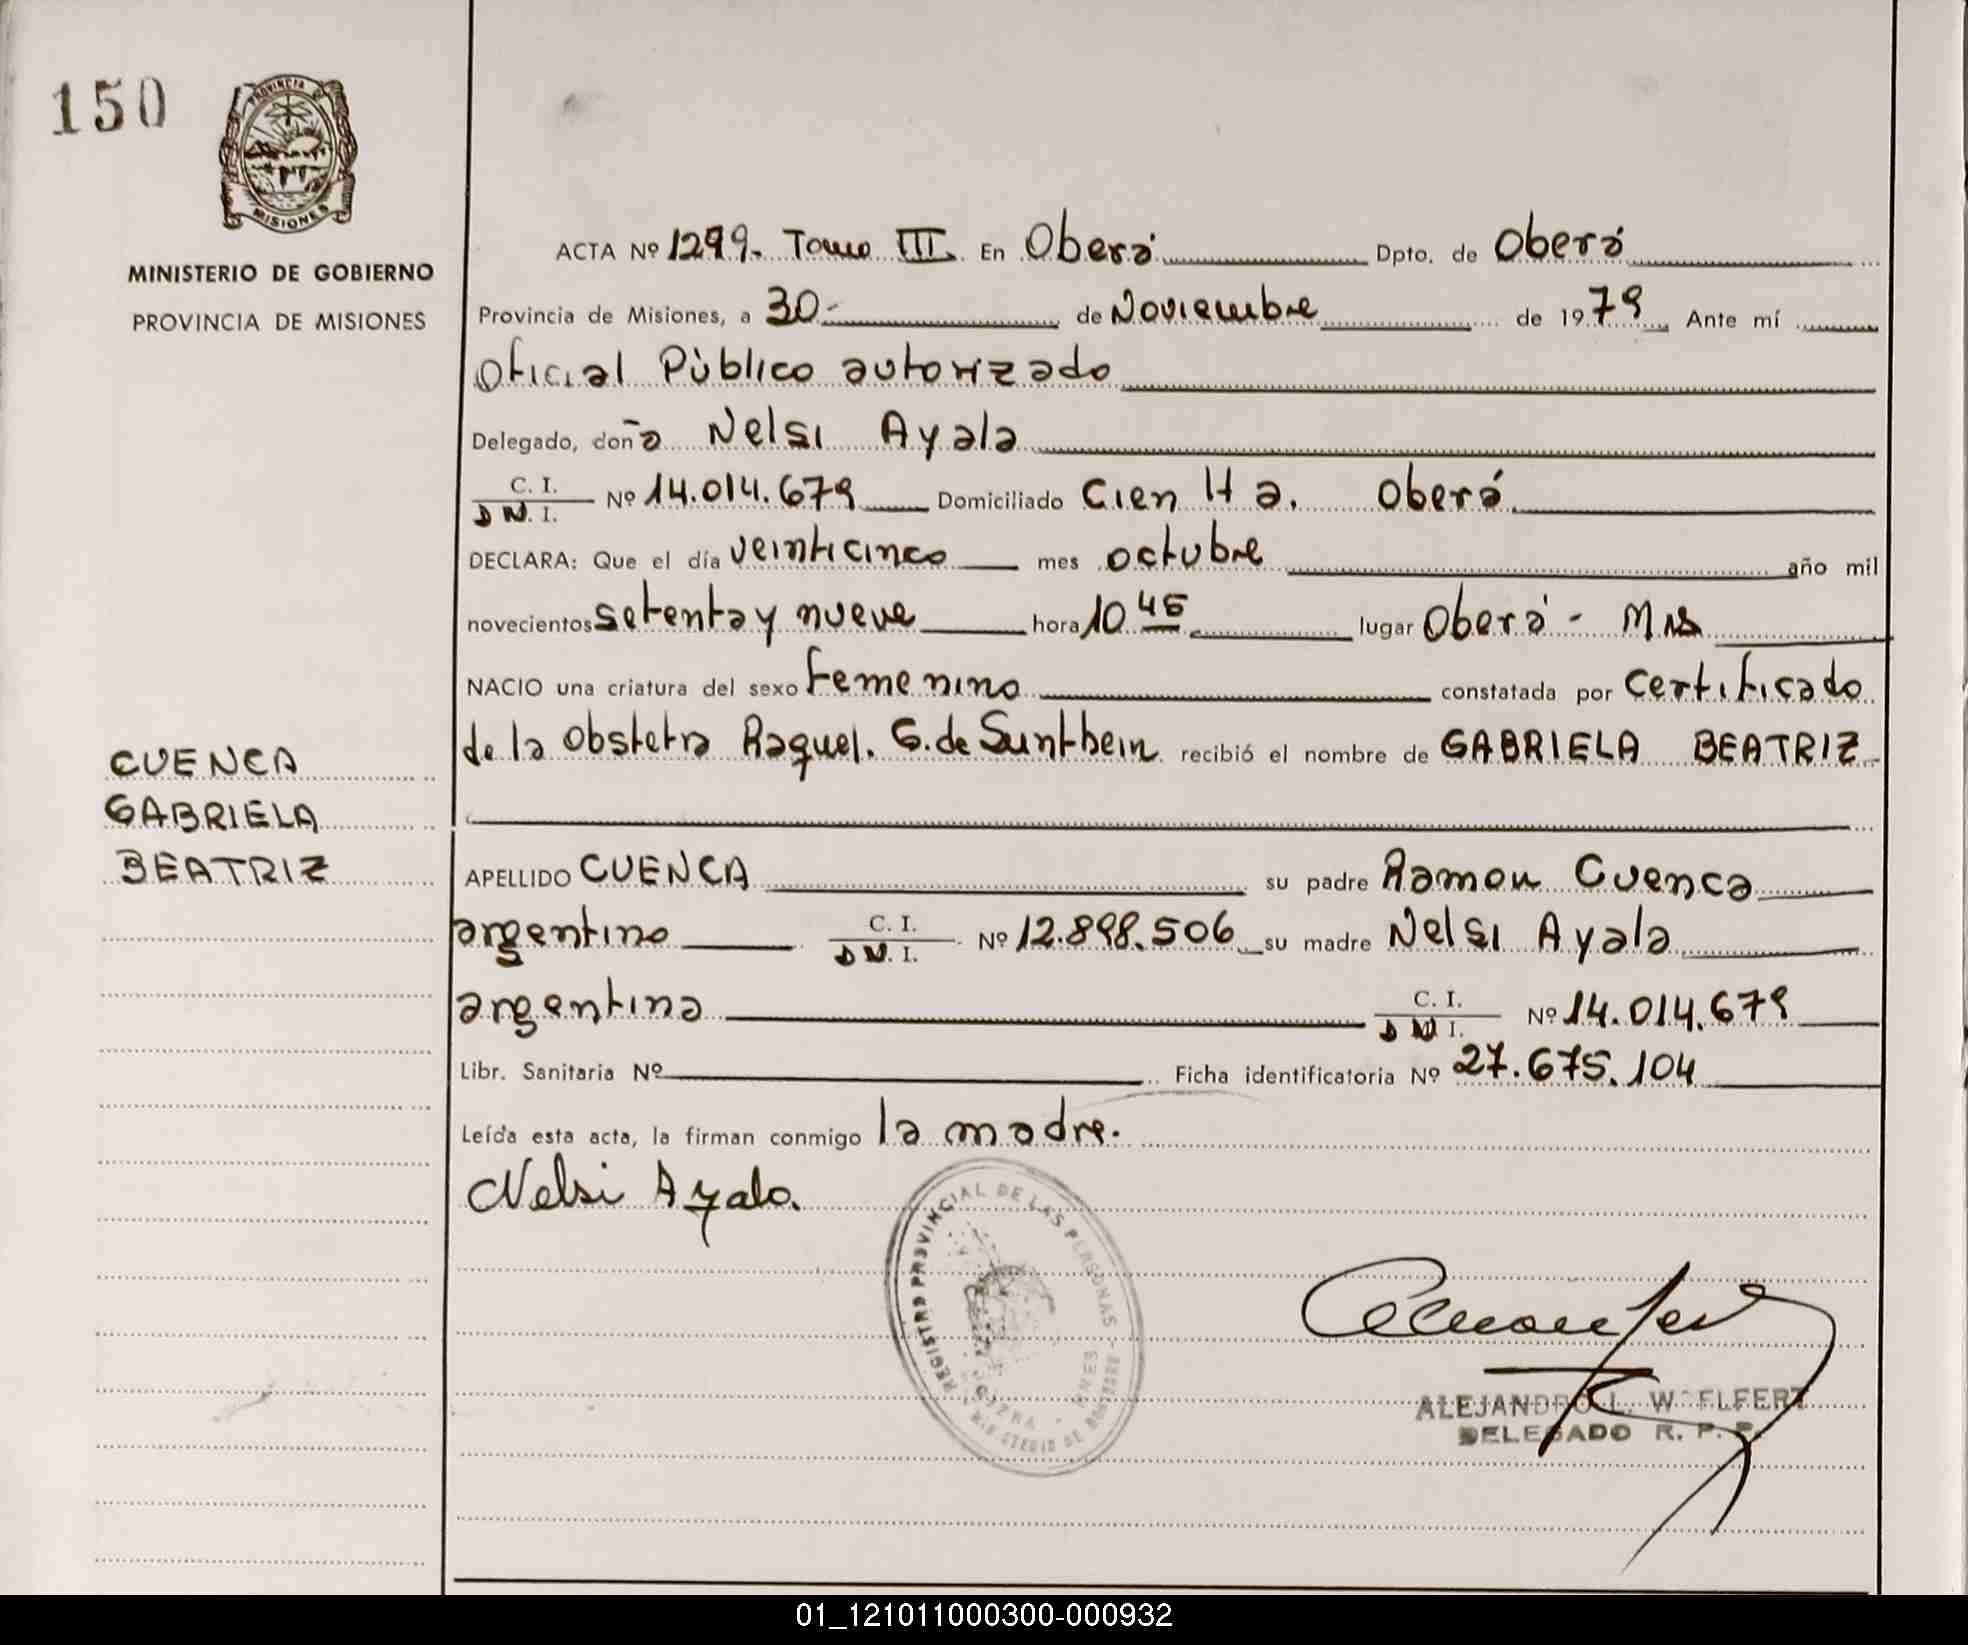 150
PROVINCIA DE
MISIONES
MINISTERIO DE GOBIERNO
PROVINCIA DE MISIONES
ACTA Nº 1299.- Tomo III. En Oberá Dpto. de Oberá
Provincia de Misiones, a 30- de Noviembre de 1979 Ante mí
Oficial Público autorizado
Delegado, doña Nelsi Ayala
C. I.
D N. I. Nº 14.014.679 Domiciliado Cien Ha. Oberá
DECLARA: Que el día veinticinco mes octubre año mil
novecientos setenta y nueve hora 10 45 lugar Oberá - Mns
NACIO una criatura del sexo femenino constatada por certificado
de la Obstetra Raquel. G. de Sunthein recibió el nombre de GABRIELA BEATRIZ
CUENCA
GABRIELA
BEATRIZ
APELLIDO CUENCA su padre Ramon Cuenca
argentino C. I.
D N. I. Nº 12.898.506 su madre Nelsi Ayala
argentina C. I.
D N I. Nº 14.014.679
Libr. Sanitaria Nº Ficha identificatoria Nº 27.675.104
Leída esta acta, la firman conmigo la madre.
Nelsi Ayala.
REGISTRO PROVINCIAL DE LAS PERSONAS
ALEJANDRO L. W ELFERT
DELEGADO R. P. P.
01_121011000300-000932